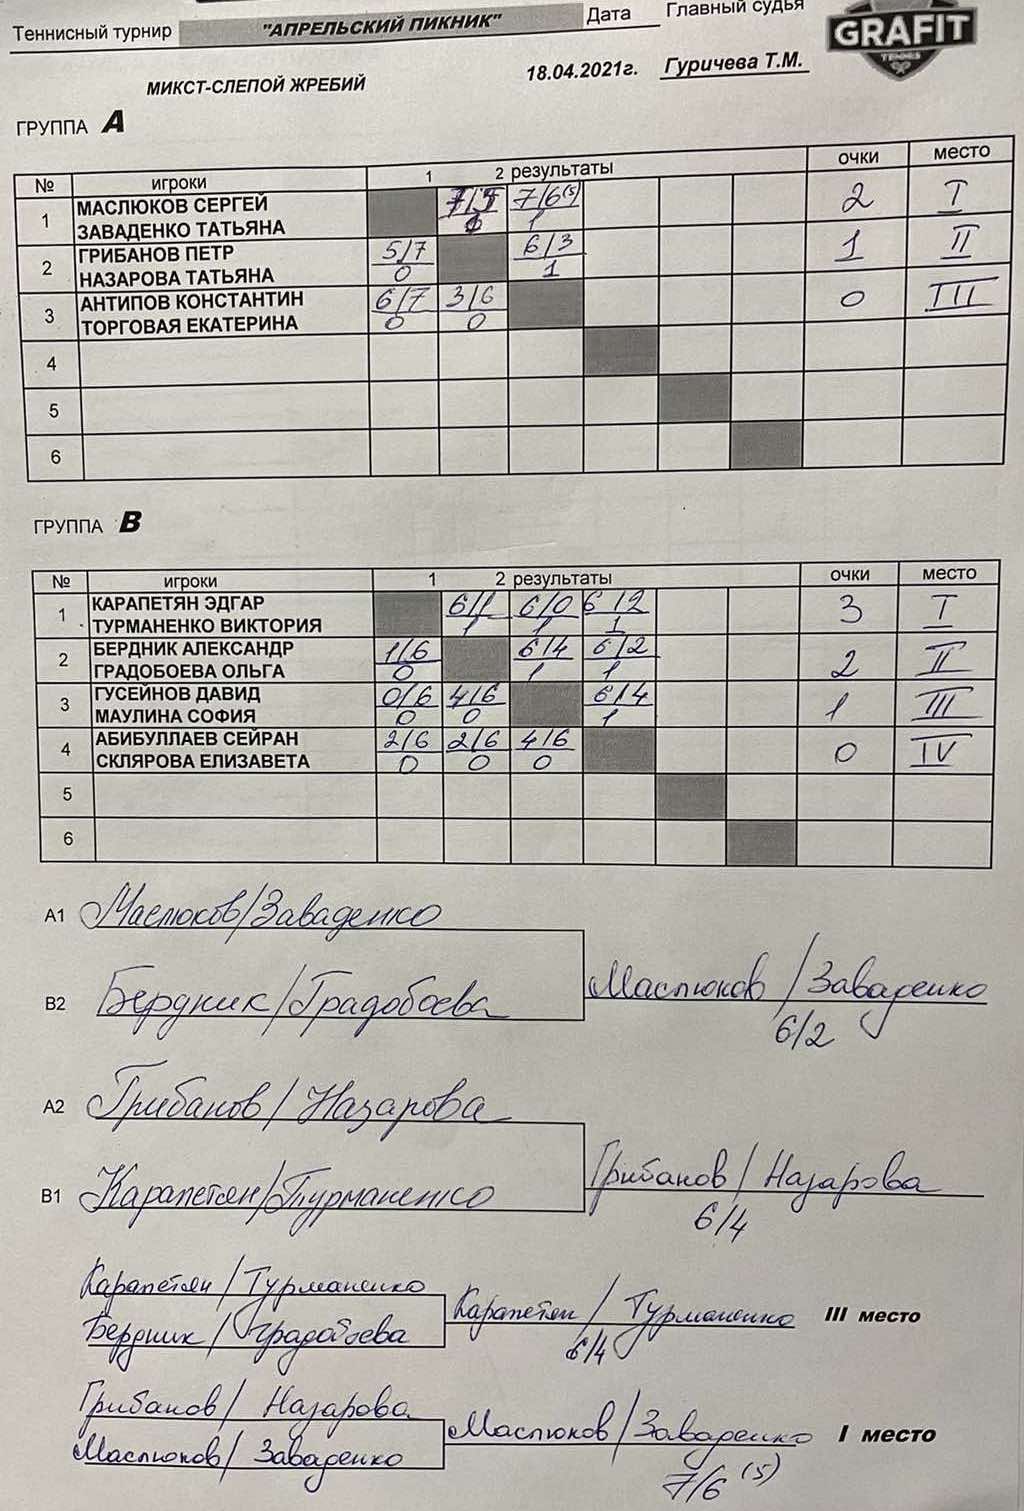 Теннисный турнир "АПРЕЛЬСКИЙ ПИКНИК" Дата Главный судья
GRAFIT
TENNIS
МИКСТ-СЛЕПОЙ ЖРЕБИЙ 18.04.2021г. Гуричева Т.М.
ГРУППА А
№ игроки 1 2 результаты очки место
1 МАСЛЮКОВ СЕРГЕЙ 7/5 7/6(5) 2 I
ЗАВАДЕНКО ТАТЬЯНА 1
2 ГРИБАНОВ ПЕТР 5/7 6/3 1 II
НАЗАРОВА ТАТЬЯНА 0 1
3 АНТИПОВ КОНСТАНТИН 6/7 3/6 0 III
ТОРГОВАЯ ЕКАТЕРИНА 0 0
4
5
6
ГРУППА В
№ игроки 1 2 результаты очки место
1 КАРАПЕТЯН ЭДГАР 6/1 6/0 6/2 3 I
ТУРМАНЕНКО ВИКТОРИЯ 1 1 1
2 БЕРДНИК АЛЕКСАНДР 1/6 6/4 6/2 2 II
ГРАДОБОЕВА ОЛЬГА 0 1 1
3 ГУСЕЙНОВ ДАВИД 0/6 4/6 6/4 1 III
МАУЛИНА СОФИЯ 0 0 1
4 АБИБУЛЛАЕВ СЕЙРАН 2/6 2/6 4/6 0 IV
СКЛЯРОВА ЕЛИЗАВЕТА 0 0 0
5
6
А1 Маслюков/Заваденко
Маслюков/Заваденко
В2 Бердник/Градобоева
6/2
А2 Грибанов/Назарова
Грибанов/Назарова
В1 Карапетян/Турманенко
6/4
Карапетян/Турманенко
Карапетян/Турманенко III место
Бердник/Градобоева
6/4
Грибанов/Назарова
Маслюков/Заваденко I место
Маслюков/Заваденко
7/6 (5)